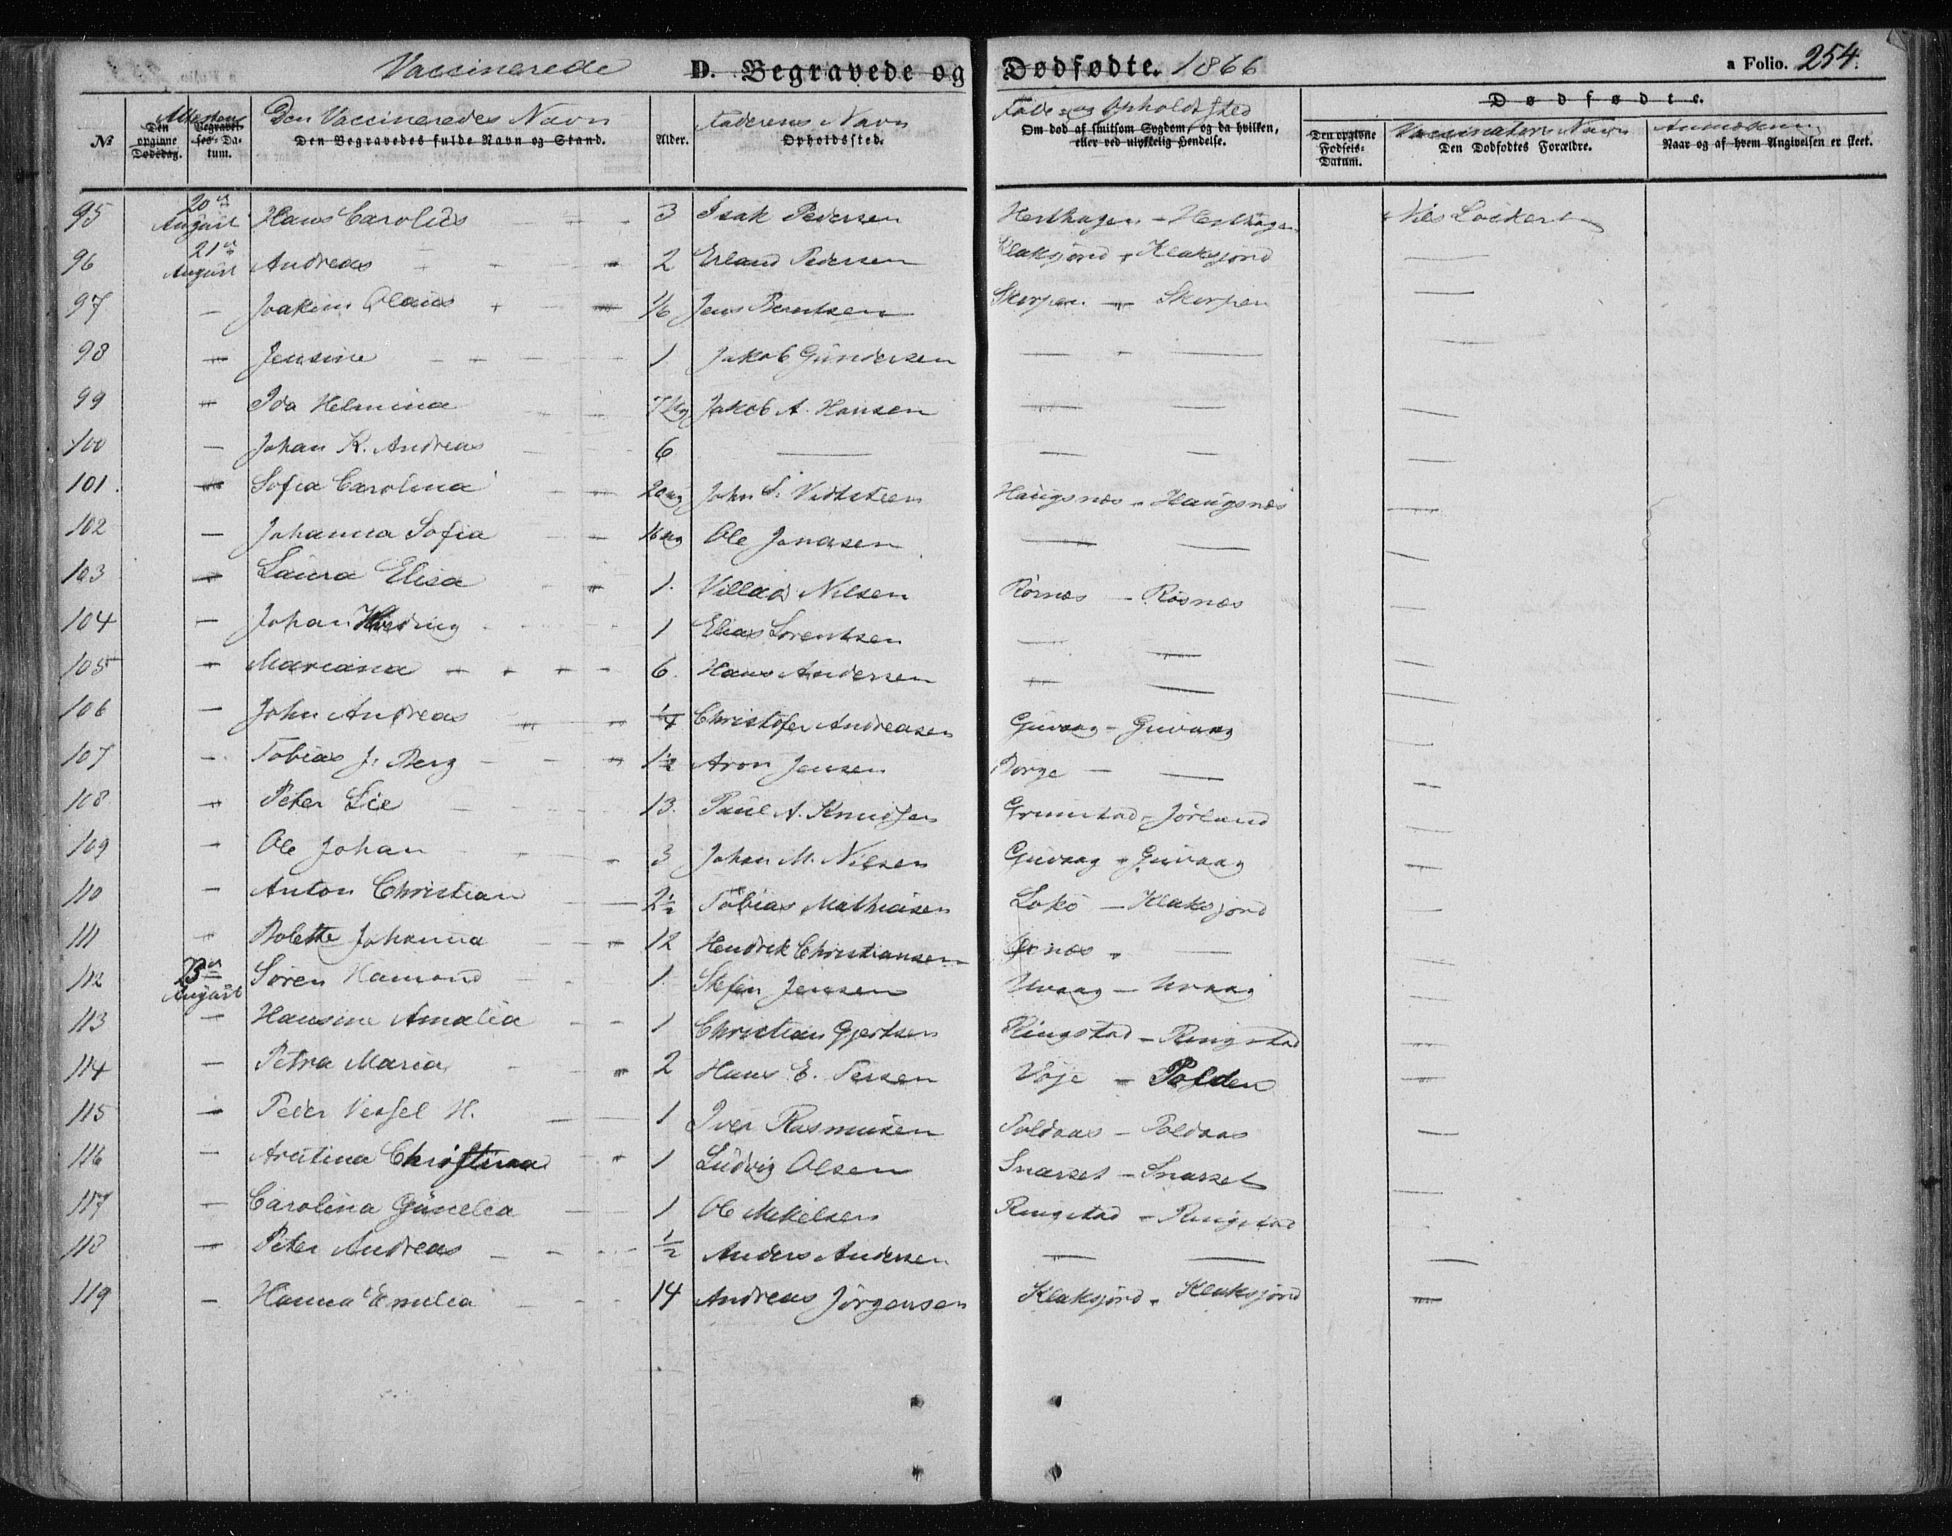 Vaccinerede D. Begravede og Dødfødte. 1866 a Folio. 254.
№ Den opgivne Dødsdag. Begravelses-Datum. Attestens
Den Vaccineredes Navn
Den Begravedes fulde Navn og Stand. Alder.
Faderens Navn
Opholdssted.
Føde og Opholdssted
Om død af smitsom Sygdom, og da hvilken, eller ved ulykkelig Hendelse.
Dødfødte.
Den opgivne Fødsels-Datum.
Vaccinators Navn
Den Dødfødtes Forældre.
Anmærkning
Naar og af hvem Angivelsen er skeet.
95 20de August Hans Carolus 3 Isak Pedersen Hesthagen - Hesthagen Nils Lockert
96 21de August Andreas 2 Erland Pedersen Klaksjord - Klaksjord —
97 — Joakim Olaus 1/6 Jens Berntsen Skorpen - Skorpen —
98 — Jensine 1 Jakob Gundersen — — —
99 — Ida Helmina Jakob A. Hansen — — —
100 — Johan K. Andreas 6 — — — —
101. — Sofia Carolina 20 ug John S. Vadsteen Haugsnæs - Haugsnæs —
102 — Johanna Sofia 16 ug Ole Jonassen — — —
103 — Laura Elisa 1. Villads Nilsen Rørnæs - Røsnæs —
104 — Johan 1 Elias Lorentsen — — —
105 — Mariana 6. Hans Andersen — — —
106 — John Andreas 1/4 Christofer Andreasen Guvaag - Guvaag —
107 — Tobias J. Berg 1½ Aron Jensen Borge — — —
108 — Peter Lie 13. Paul A. Knudsen Grimstad - Jørland —
109 — Ole Johan 3 Johan M. Nilsen Guvaag - Guvaag —
110 — Anton Christian 2½ Tobias Mathiasen Lokø - Klaksjord —
111 — Bolette Johanna 12 Hendrik Christiansen — —
112 23de August Søren Hamond 1. Stefen Jensen Uvaag - Uvaag —
113 — Hansine Amalia 1 Christian Gjertsen Ringstad - Ringstad —
114 — Petra Maria 2 Hans E. Tersen Vøje - Polden —
115 — Peder Vessel H. 1 Iver Rasmusen Poldaas - Poldaas —
116 — Arntina Christina 1 Ludvig Olsen Snarset - Snarset
117 — Carolina Gunelia 1 Ole Mikelsen Ringstad - Ringstad —
118 — Peter Andreas ½ Anders Andersen — — —
119 — Hanna Emilia 14 Andreas Jörgensen Klaksjord - Klaksjord —